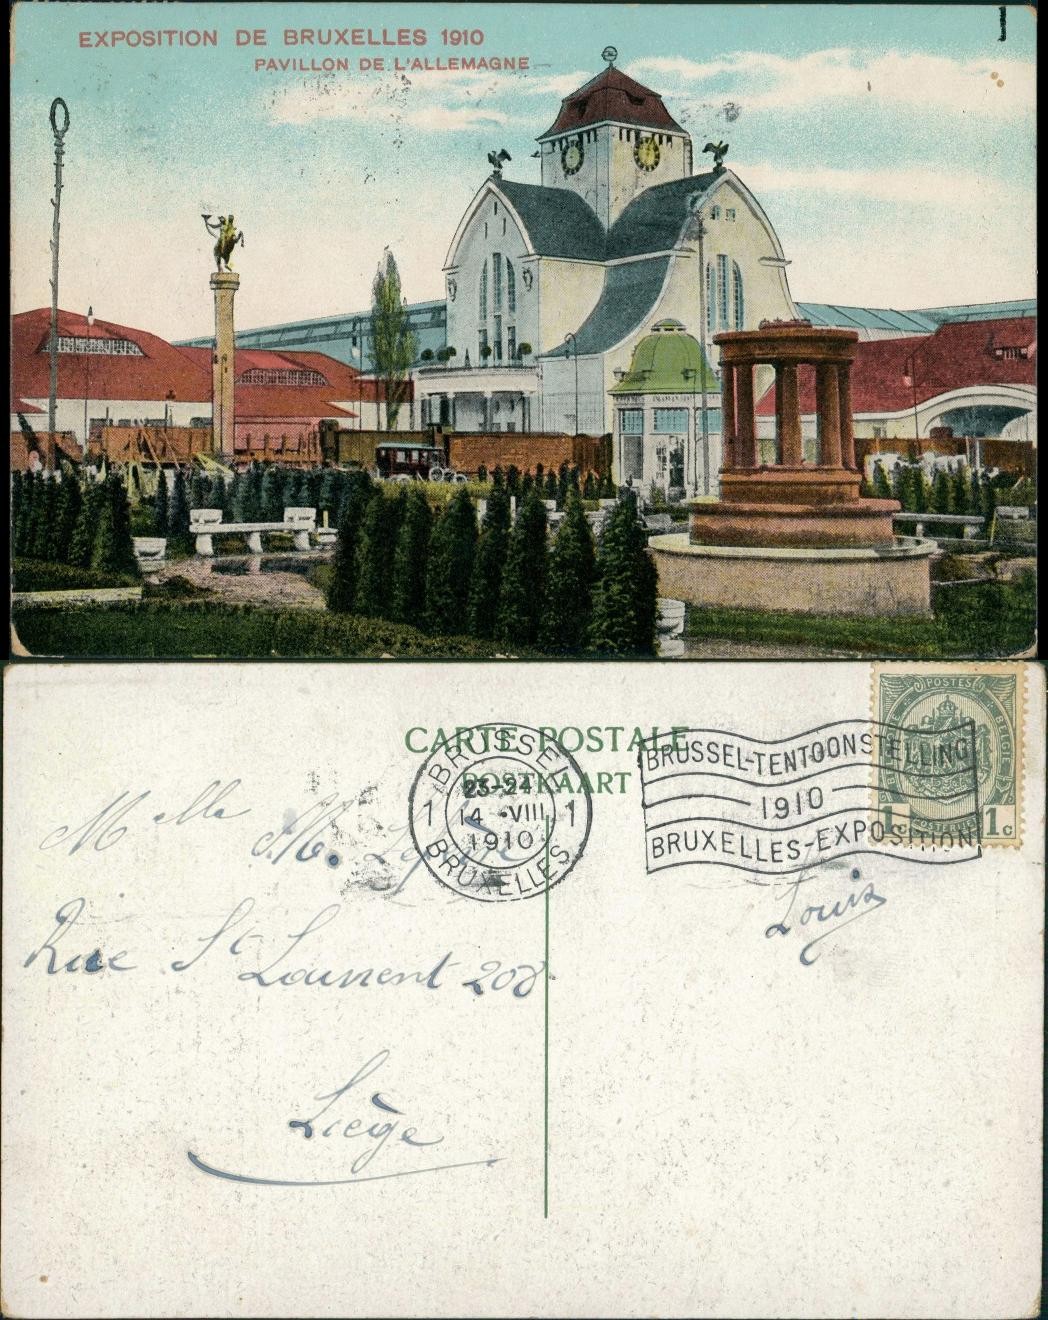 EXPOSITION DE BRUXELLES 1910
PAVILLON DE L'ALLEMAGNE
CARTE POSTALE
POSTKAART
BRUSSEL
1 23-24 1
14 • VIII
1910
BRUXELLES
BRUSSEL-TENTOONSTELLING
1910
BRUXELLES-EXPOSITION
POSTES
BELGIQUE
1c 1c
POSTERIJEN
Melle M.
Rue St Laurent 208
Liège
Louis